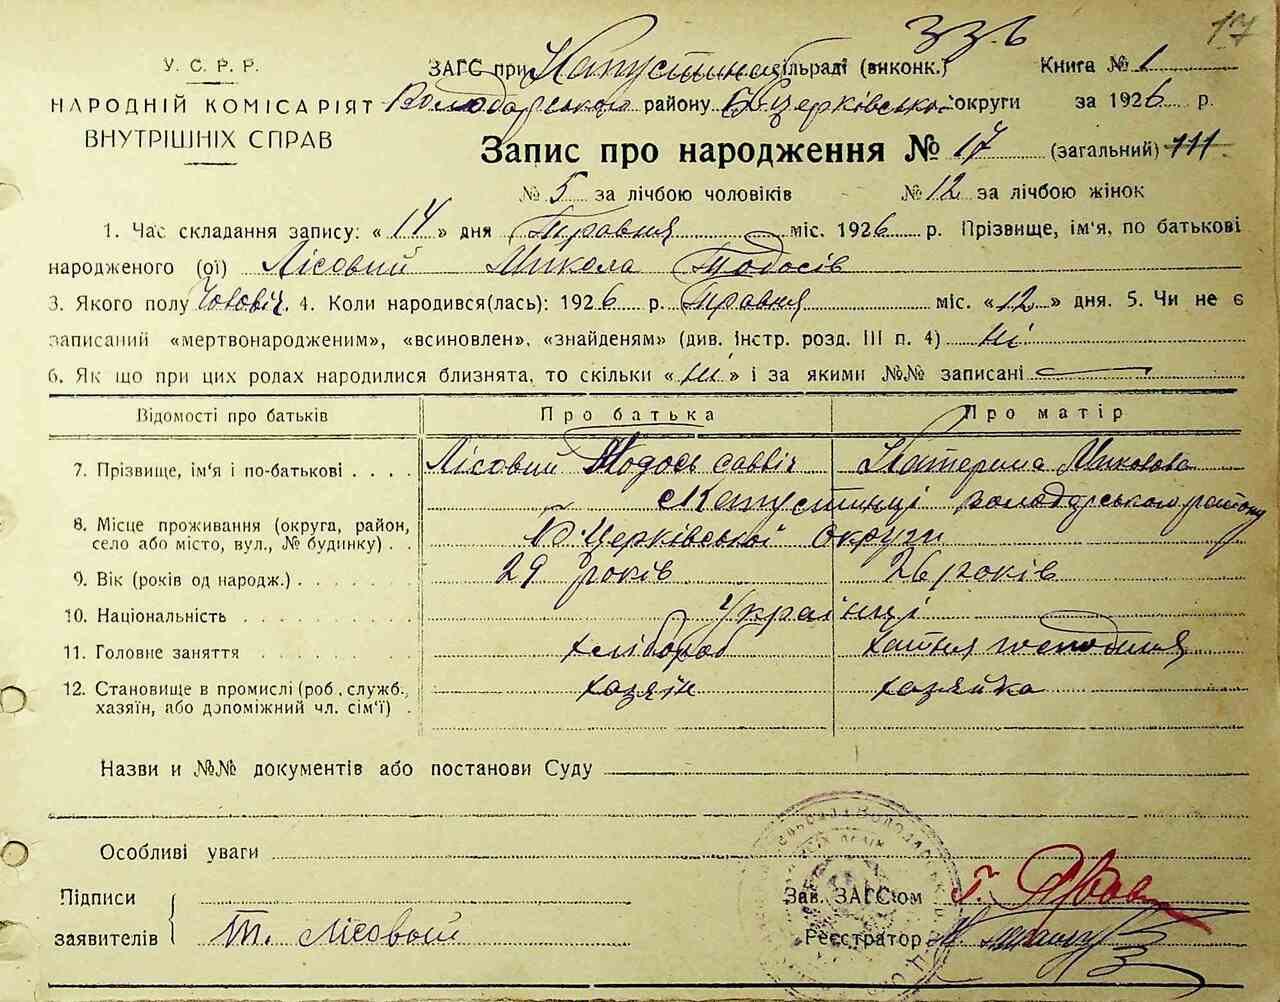 17
ЗЗ.Ь
У. С. Р. Р.
НАРОДНІЙ КОМІСАРІЯТ
ВНУТРІШНІХ СПРАВ
ЗАГС при Капустинс сільраді (виконк.) Книга № 1
Володарського району Б-Церківської округи за 1926 р.
Запис про народження № 17 (загальний) 111.
№ 5 за лічбою чоловіків № 12 за лічбою жінок
1. Час складання запису: « 14 » дня Травня міс. 1926 р. Прізвище, ім'я, по батькові
народженого (ої) Лісовий Микола Тодосів
3. Якого полу Чоловіч. 4. Коли народився(лась): 1926 р. Травня міс. « 12 » дня. 5. Чи не є
записаний «мертвонародженим», «всиновлен», «знайденям» (див. інстр. розд. III п. 4) Ні
6. Як що при цих родах народилися близнята, то скільки « Ні » і за якими №№ записані
Відомості про батьків Про батька Про матір
7. Прізвище, ім'я і по-батькові . . . . Лісовий Тодось Саввіч Катерина Миколова
с Капустинці Володарського району
8. Місце проживання (округа, район,
село або місто, вул., № будинку) . . Б.Церківської округи
9. Вік (років од народж.) . . . . . 29 років 26 років
10. Національність . . . . . . . . Українці
11. Головне заняття . . . . . . . хлібороб хатня господиня
12. Становище в промислі (роб., служб.,
хазяїн, або допоміжний чл. сім'ї) . хазяїн хазяйка
Назви и №№ документів або постанови Суду
Особливі уваги
Підписи
заявителів Т. Лісовой
Зав. ЗАГС'ом
Реєстратор